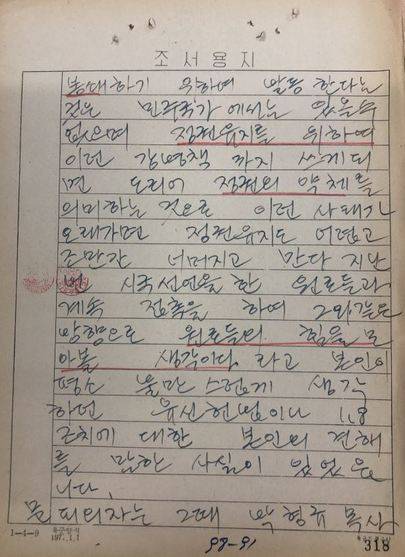 조서용지
봉쇄하기 위하여 발동한다는
것은 민주국가에서는 있을수
없으며 정권유지를 위하여
이런 강경책까지 쓰게되
면 도리어 정권의 약체를
의미하는 것으로 이런 사태가
오래가면 정권유지도 어렵고
조만간 너머지고 만다 지난
번 시국선언을 한 원로들과
계속 접촉을 하여 그와같은
방향으로 원로들의 힘을 모
아볼 생각이다 라고 본인이
평소 불만스럽게 생각
하던 유신헌법이나 1.8
조치에 대한 본인의 견해
를 말한 사실이 있었읍
니다
문 피의자는 그때 박형규 목사
1-4-9
1971.1.1
98-91
318